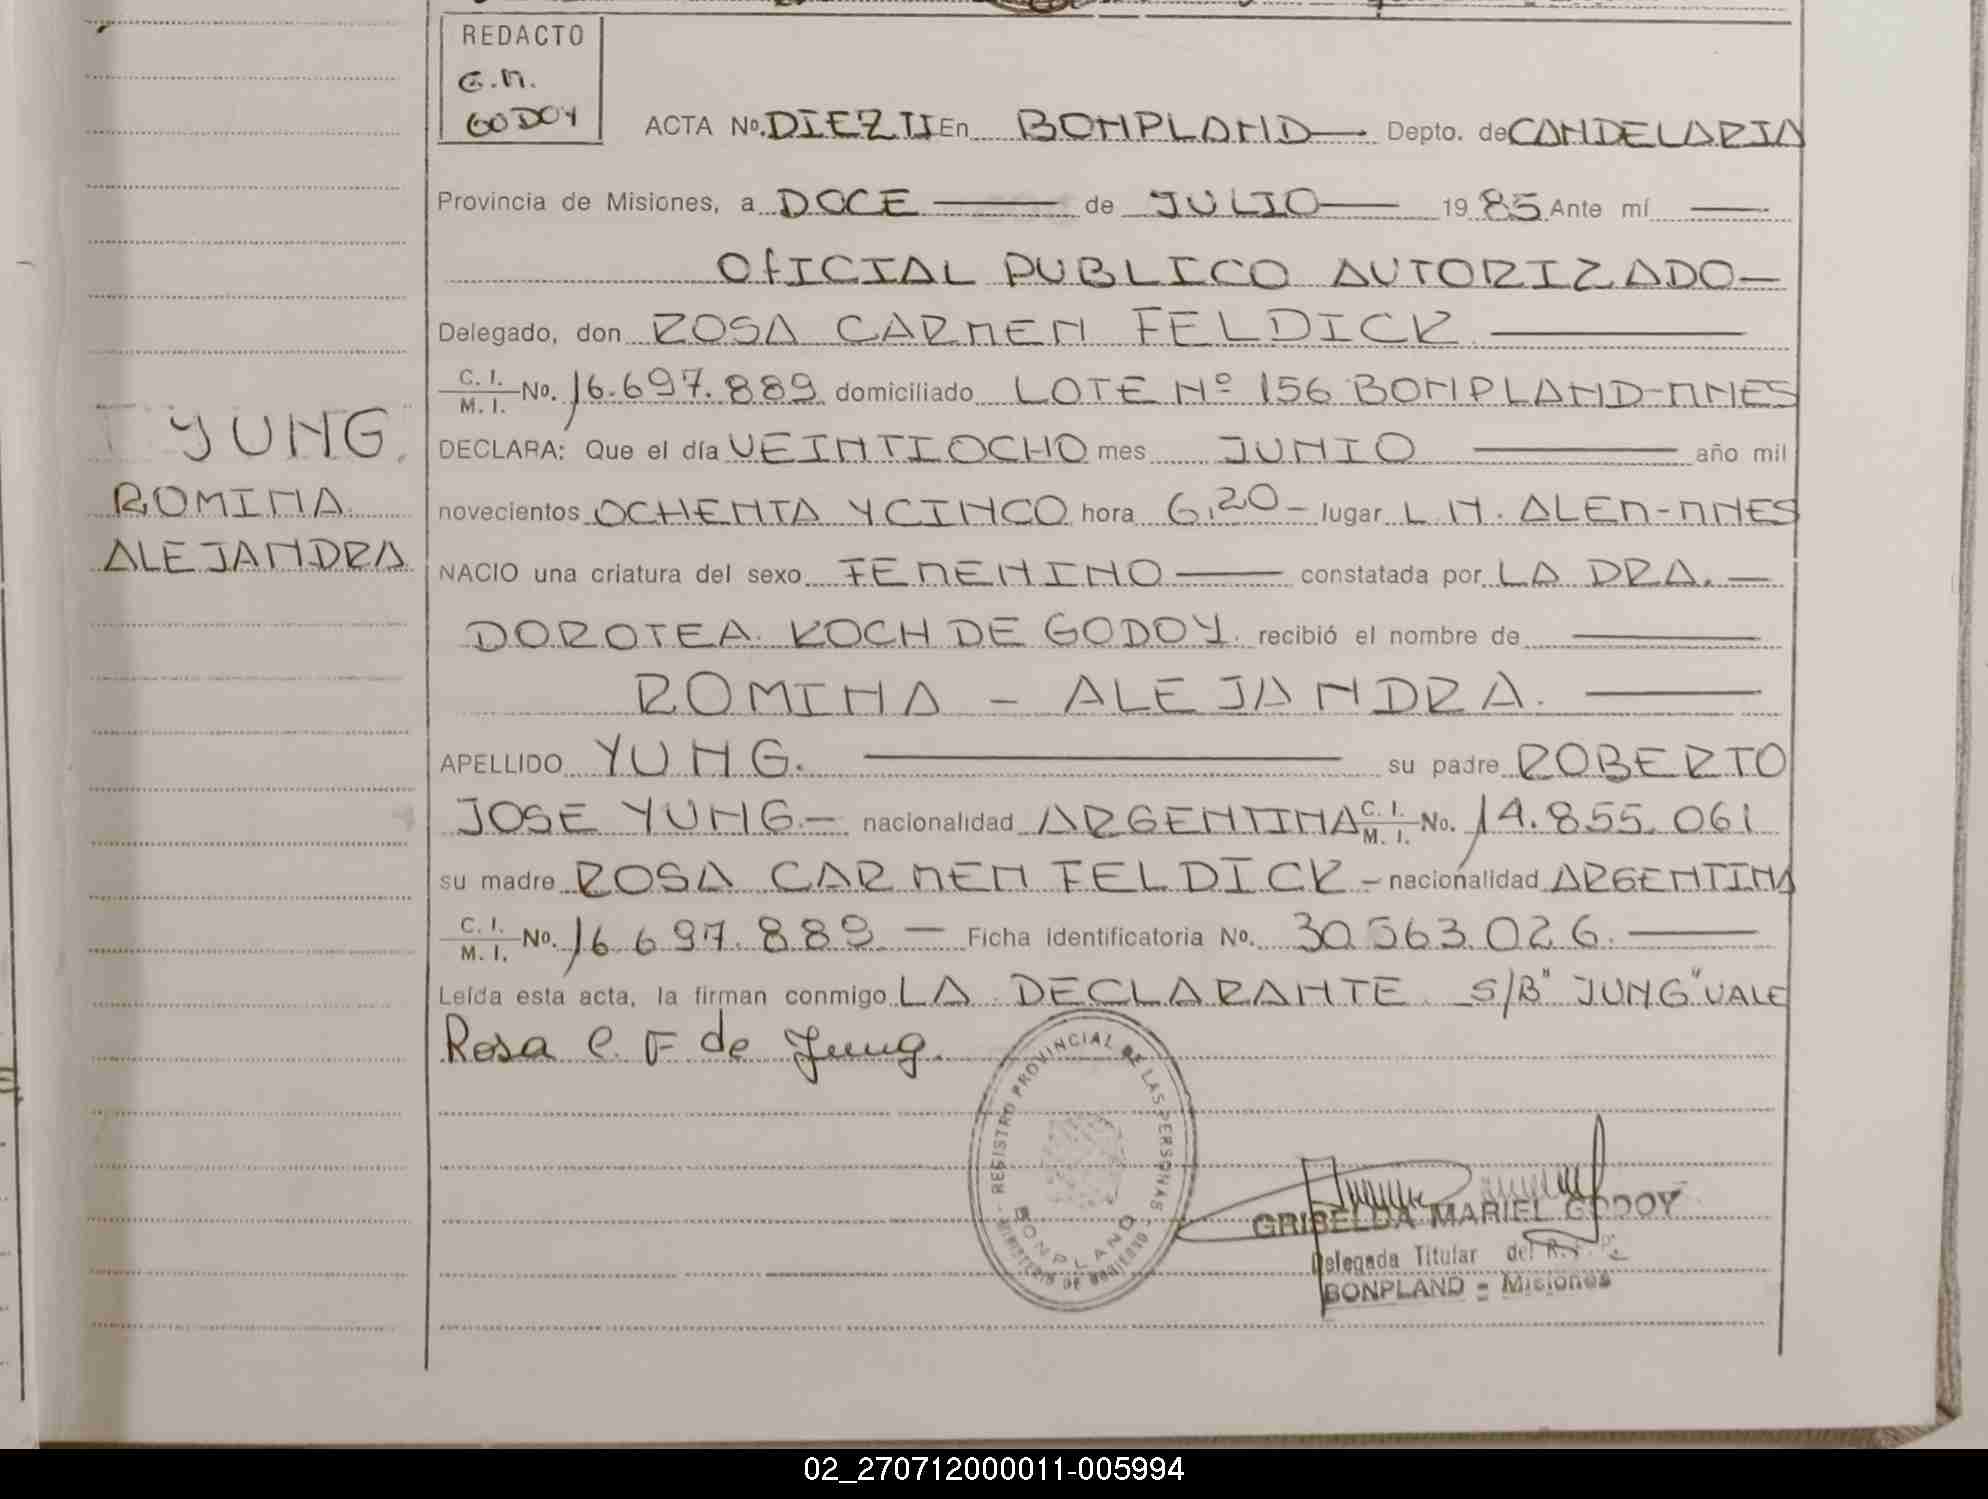 REDACTO
G.M.
GODOY
ACTA No. DIEZ II En BONPLAND — Depto. de CANDELARIA
Provincia de Misiones, a DOCE — de JULIO — 19 85 Ante mí —
OfICIAL PUBLICO AUTORIZADO —
Delegado, don ROSA CARMEN FELDICK —
C. I. / M. I. No. 16.697.889 domiciliado LOTE Nº 156 BONPLAND-MNES
DECLARA: Que el día VEINTIOCHO mes JUNIO — año mil
novecientos OCHENTA Y CINCO hora 6,20 - lugar L.N. ALEM-MNES
NACIO una criatura del sexo FEMENINO — constatada por LA DRA. —
DOROTEA KOCH DE GODOY. recibió el nombre de —
ROMINA - ALEJANDRA. —
APELLIDO YUNG. — su padre ROBERTO
JOSE YUNG.- nacionalidad ARGENTINA C. I. / M. I. No. 14.855.061
su madre ROSA CARMEN FELDICK - nacionalidad ARGENTINA
C. I. / M. I. No. 16.697.889 — Ficha identificatoria No. 30.563.026. —
Leída esta acta, la firman conmigo LA DECLARANTE S/B "JUNG" VALE
Rosa C. F de Jung.
YUNG,
ROMINA
ALEJANDRA
REGISTRO PROVINCIAL DE LAS PERSONAS
BONPLAND
MINISTERIO DE GOBIERNO
GRISELDA MARIEL GODOY
Delegada Titular del R. P. P.
BONPLAND - Misiones
02_270712000011-005994